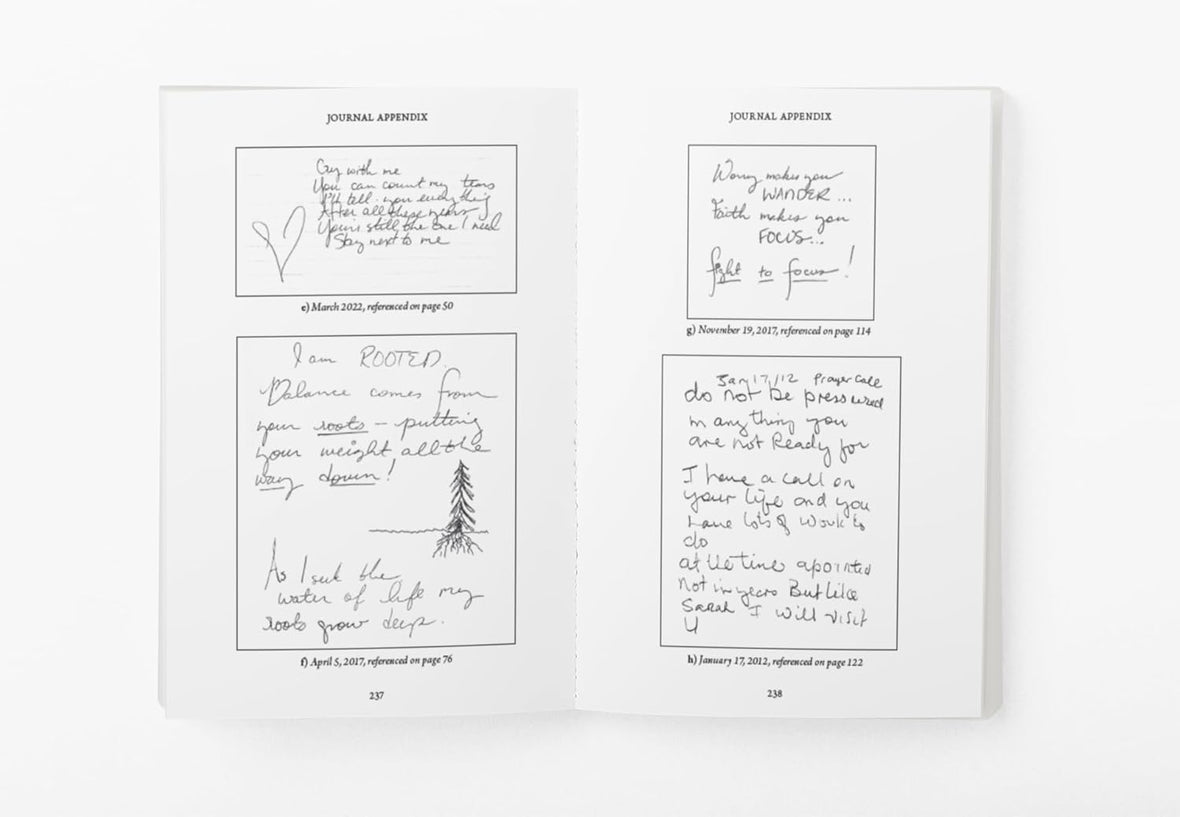 JOURNAL APPENDIX
Cry with me
You can count my tears
I'll tell you everything
After all these years
You're still the one I need
Stay next to me
e) March 2022, referenced on page 50
I am ROOTED.
Balance comes from
your roots – putting
your weight all the
way down!
As I seek the
water of life my
roots grow deep.
f) April 5, 2017, referenced on page 76
237
JOURNAL APPENDIX
Worry makes you
WANDER...
Faith makes you
FOCUS...
fight to focus!
g) November 19, 2017, referenced on page 114
Jan 17/12 Prayer Call
do not be pressured
in anything you
are not Ready for
I have a call on
your life and you
have lots of work to
do
at the time apointed
Not in years But Like
Sarah I will visit
U
h) January 17, 2012, referenced on page 122
238